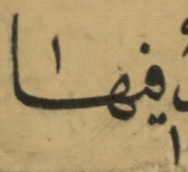 فيها